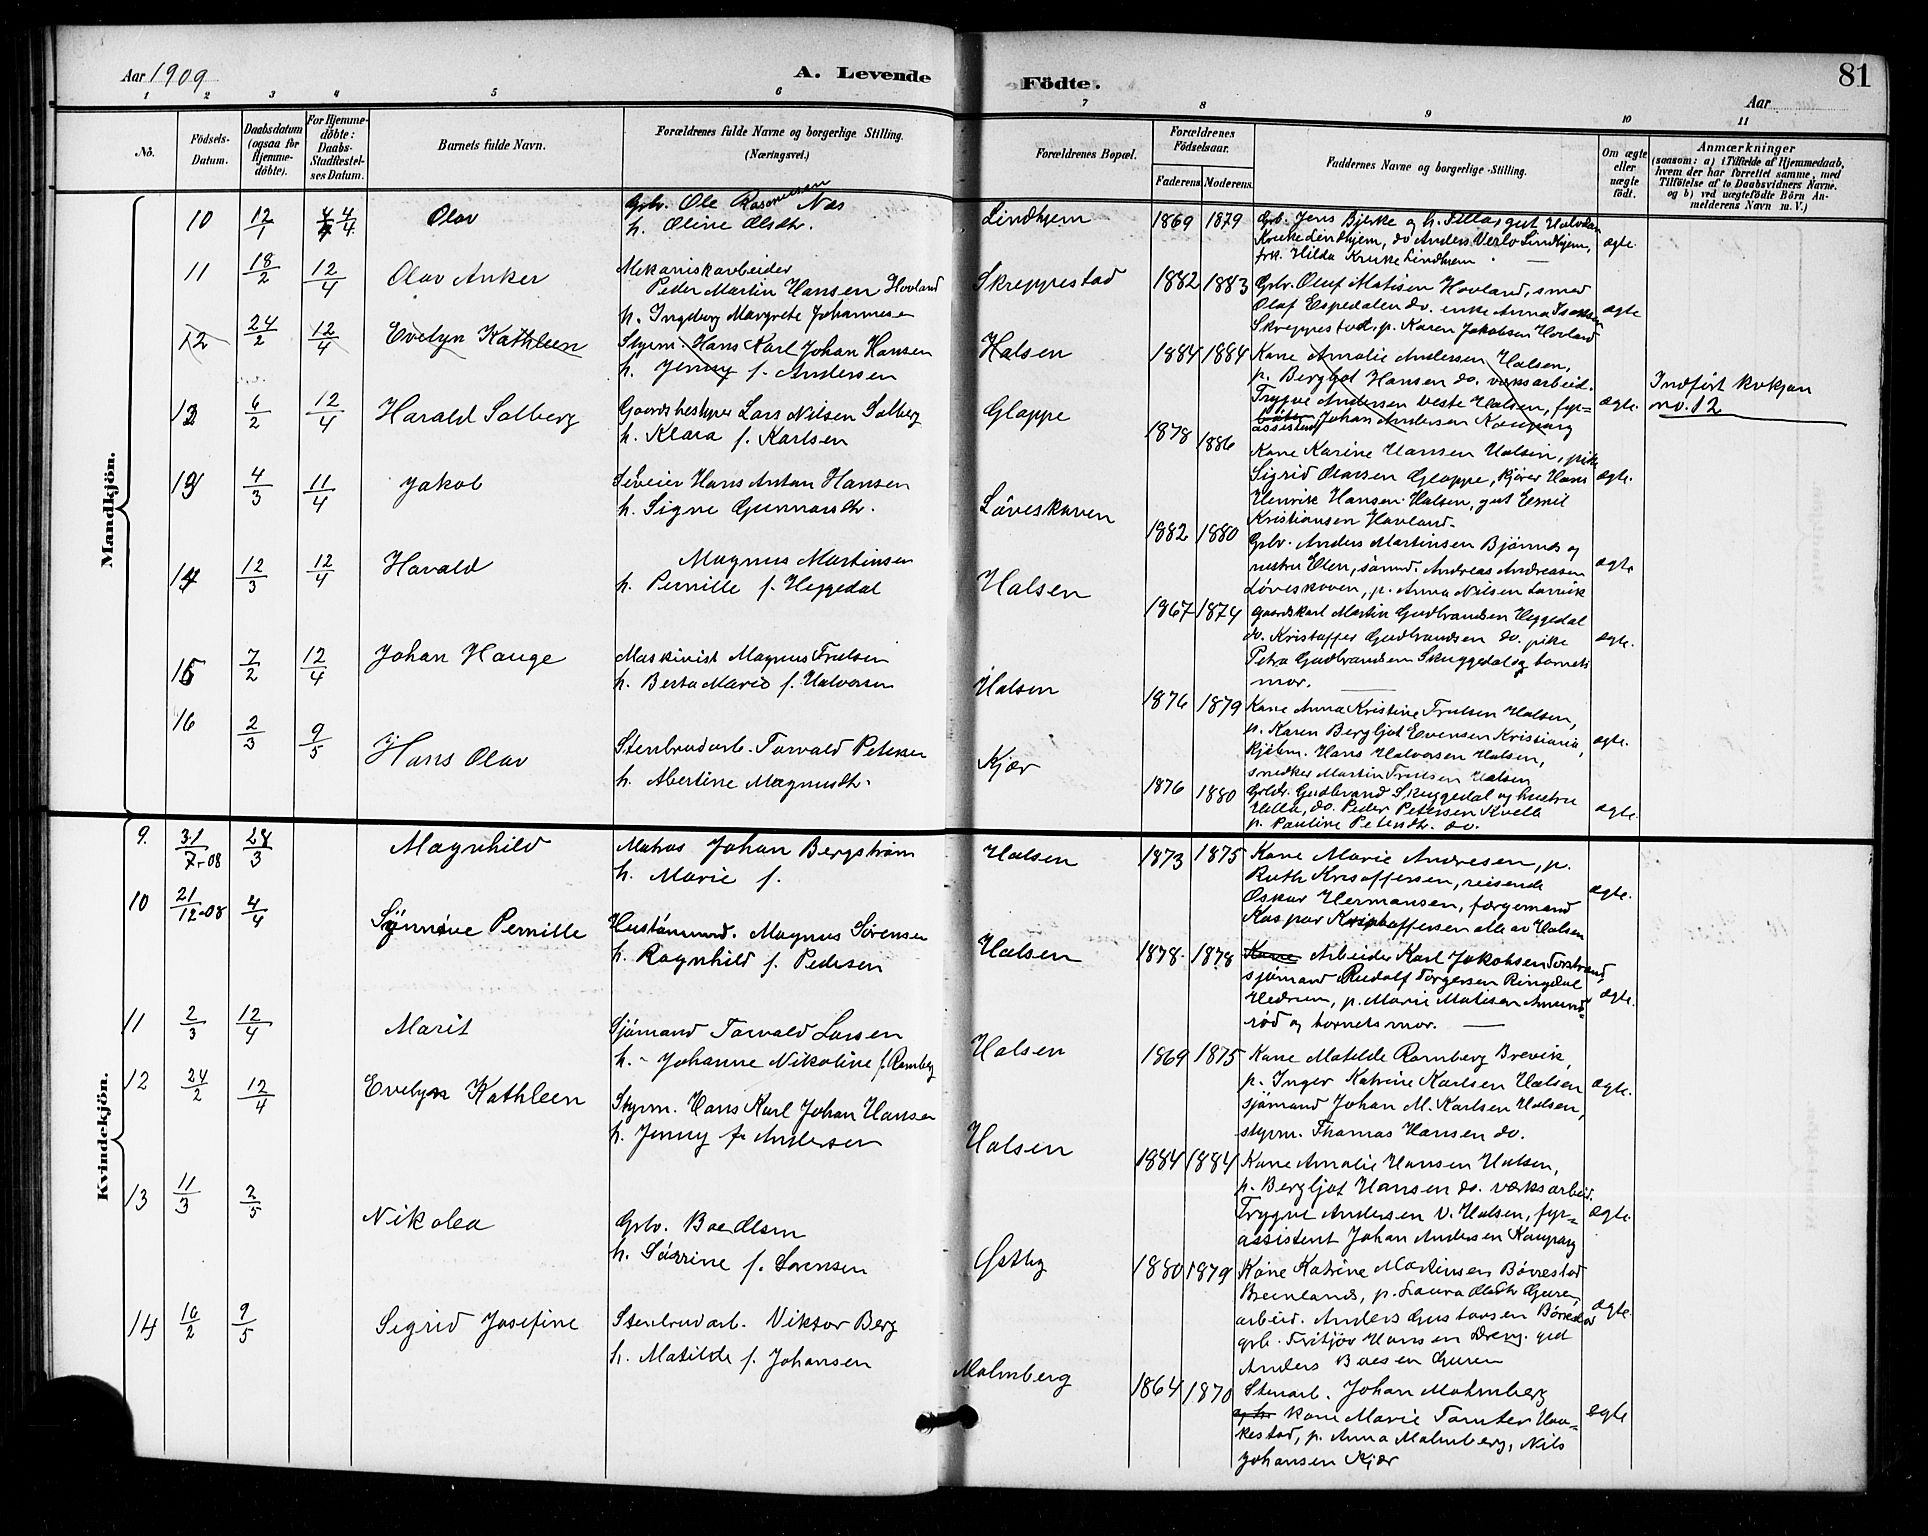 Aar 1909
A. Levende
Födte.
81
Aar
1 2 3 4 5 6 7 8 9 10 11
Nô.
Födsels-
Datum.
Daabsdatum
(ogsaa for
Hjemme-
döbte).
For Hjemme-
döbte:
Daabs-
Stadfæstel-
ses Datum.
Barnets fulde Navn.
Forældrenes fulde Navne og borgerlige Stilling.
(Næringsvei.)
Forældrenes Bopæl.
Forældrenes
Födselsaar.
Faderens.
Moderens.
Faddernes Navne og borgerlige Stilling.
Om ægte
eller
uægte
födt.
Anmærkninger
(saasom: a) i Tilfælde af Hjemmedaab,
hvem der har forrettet samme, med
Tilföielse af to Daabsvidners Navne.
og b) ved uægtefödte Börn An-
melderens Navn m. V.)
Mandkjön.
10 12/1 4/4 Olav
Grbr. Ole Rasmussen Næs
h. Oline Olsdtr.
Lindhjem 1869 1879
Grb. Jens Bjerke og h. gut Halvdan
Kruke Lindhjem, do Anders Lindhjem,
frk. Hilda Kruke Lindhjem
ægte
11 18/2 12/4 Olav Anker
Mekaniskarbeider
Peder Martin Hansen Hovland
h. Ingeborg Margrete Johannesen
Skreppestad 1882 1883
Grbr. Oluf Matisen Hovland, smed
Olaf Espedalen do. enke Anna
Skreppestad, p. Karen Jakobsen Hovland
ægte
12 24/2 12/4 Evelyn Kathleen
Styrm. Hans Karl Johan Hansen
h. Jenny f. Andersen
Halsen 1884 1884
Kone Amalie Andersen Halsen,
p. Bergljot Hansen do. væksarbeid.
Trygve Andersen Veste Halsen, fyr-
assistent Johan Andersen Kaupang
ægte.
Indført kvkjøn
no. 12
12 6/2 12/4 Harald Solberg
Gaardsbestyrer Lars Nilsen Solberg
h. Klara f. Karlsen
Gloppe 1878 1886
Kone Karine Hansen Halsen, pike
Sigrid Olavsen Gloppe, kjører Hans
Henrik Hansen Halsen, gut Emil
Kristiansen Hovland.
ægte.
13 4/3 11/4 Jakob
Hans Anton Hansen
h. Signe Gunnarsdtr.
Løveskoven 1882 1880
Grbr. Anders Martinsen Bjønnes og
hustru Elen, sømd. Andreas Andreasen
Løveskoven, p. Anna Nilsen Larvik
ægte
14 12/3 12/4 Harald
Magnus Martinsen
h. Pernille f. Heggedal
Halsen 1867 1874
Gaardskarl Martin Gudbrandsen Heggedal
do. Kristoffer Gudbrandsen do. pike
Petra Gudbrandsen Skuggedal og barnets
mor.
ægte.
15 7/2 12/4 Johan Hauge
Maskinist Magnus Trulsen
h. Berta Marie f. Halvorsen
Halsen 1876 1879
Kone Anna Kristine Trulsen Halsen,
p. Karen Bergljot Evensen Kristiania,
kjøbm. Hans Halvorsen Halsen,
snedker Martin Trulsen Halsen
ægte.
16 2/3 9/5 Hans Olav
Stenbrudarb. Torvald Petersen
h. Albertine Magnusdtr.
Kjær 1876 1880
Grbr. Gudbrand Skuggedal og hustru
Helle, do. Peder Petersen Kveld
p. Pauline Petersdtr. do.
ægte.
Kvindekjön.
9. 31/7-08 28/3 Magnhild
Matros Johan Bergstrøm
h. Marie f.
Halsen 1873 1875
Kone Marie Andresen, p.
Ruth Kristoffersen, reisende
Oskar Hermansen, færgemand
Kaspar Kristoffersen alle av Halsen
ægte.
10 21/12-08 4/4 Synnøve Pernille
Hustømmerm. Magnus Sørensen
h. Ragnhild f. Pedersen
Halsen 1878. 1878
Kone Arbeider Karl Jakobsen Torstrand,
sjømand Rudolf Torgersen Ringdal
Hedrum, p. Marie Matisen Amund-
rød og barnets mor.
ægte.
11 2/3 12/4 Marit
Sjømand Torvald Larsen
h. - Johanne Nikoline f. Ramberg
Halsen 1869 1875
Kone Matilde Ramberg Brevik,
p. Inger Katrine Karlsen Halsen
sjømand Johan M. Karlsen Halsen,
styrm. Thomas Hansen do.
ægte.
12 24/2 12/4 Evelyn Kathleen
Styrm. Hans Karl Johan Hansen
h. Jenny f. Andersen
Halsen 1884 1884
Kone Amalie Hansen Halsen,
p. Bergljot Hansen do. væksarbeid.
Trygve Andersen V. Halsen, fyr-
assistent Johan Andersen Kaupang
ægte.
13 11/3 2/5 Nikolea
Grbr. Bo Edlsen
h. Søsrine f. Sørensen
Østby 1880 1879
Kone Katrine Martinsen Børrestad
Brunlanes, p. Laura Guren,
arbeid. Anders Gustavsen Børrestad
grb. Fritjov Hansen Dreng. gut
Anders Boesen Guren
ægte.
14 10/2 9/5 Sigrid Josefine
Stenbrudarb. Viktor Berg
h. Matilde f. Johansen
Malmberg 1864 1870
Stenarb. Johan Malmberg
og h. kone Marie Tomter Hau-
kestad, p. Anna Malmberg, Nils
Johansen Kjær
ægte